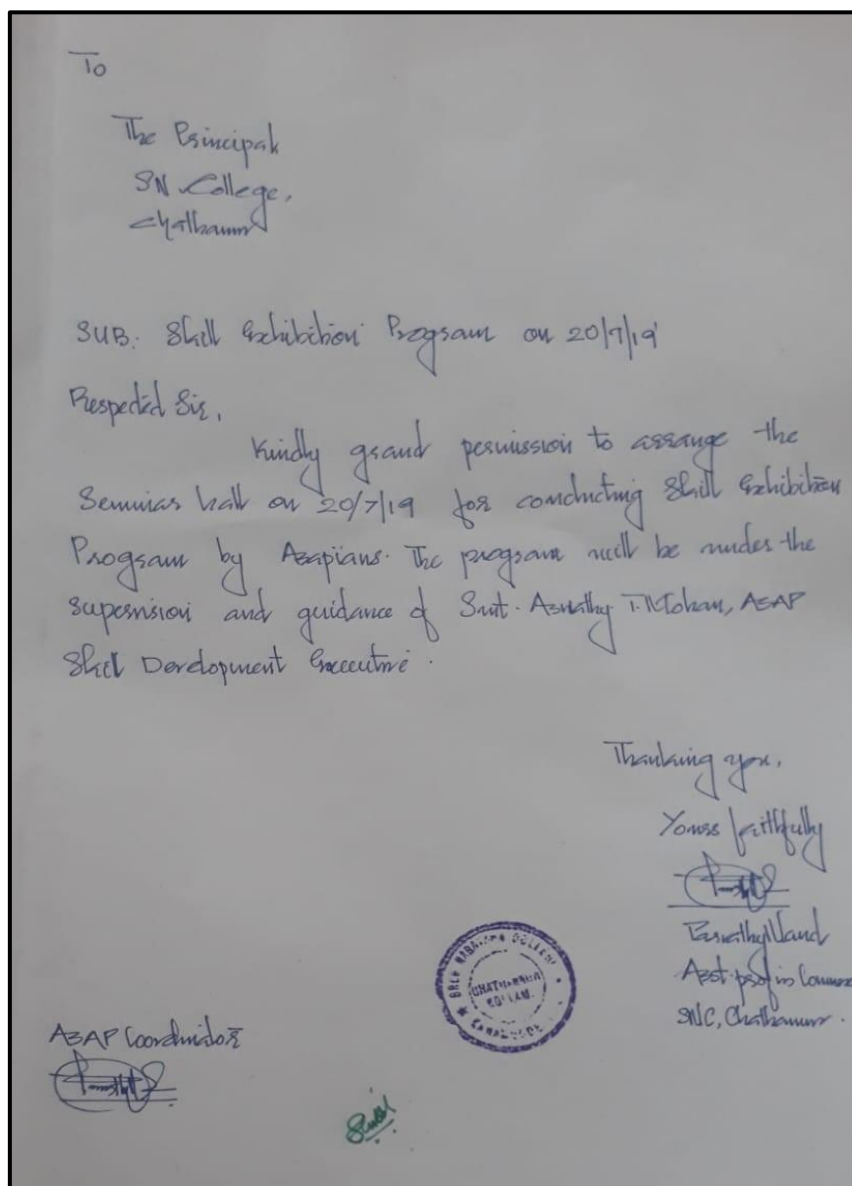 To
The Principal
SN College,
Chathannur
SUB: Skill Exhibition Program on 20/7/19
Respected Sir,
Kindly grand permission to arrange the
Seminar hall on 20/7/19 for conducting Skill Exhibition
Program by Asapians. The program will be under the
supervision and guidance of Smt. Aswathy T. Mohan, ASAP
Skill Development Executive.
Thanking you,
Yours faithfully
Parvathy Nand
Asst. prof in Commerce
SNC, Chathannur.
SREE NARAYANA COLLEGE
CHATHANNUR
KOLLAM
ASAP Coordinator